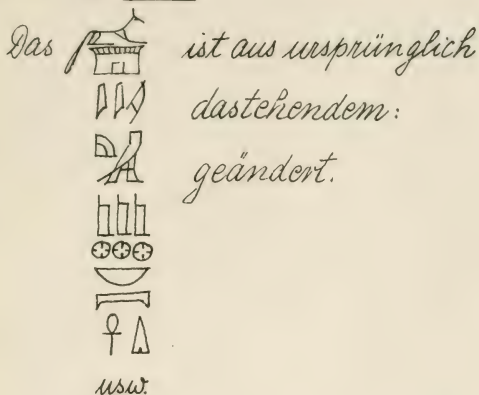 Das ist aus ursprünglich
dastehendem:
geändert.
𓊨𓊨𓊨
𓊖𓊖𓊖
𓎟
𓇯
𓋹𓏙
usw.